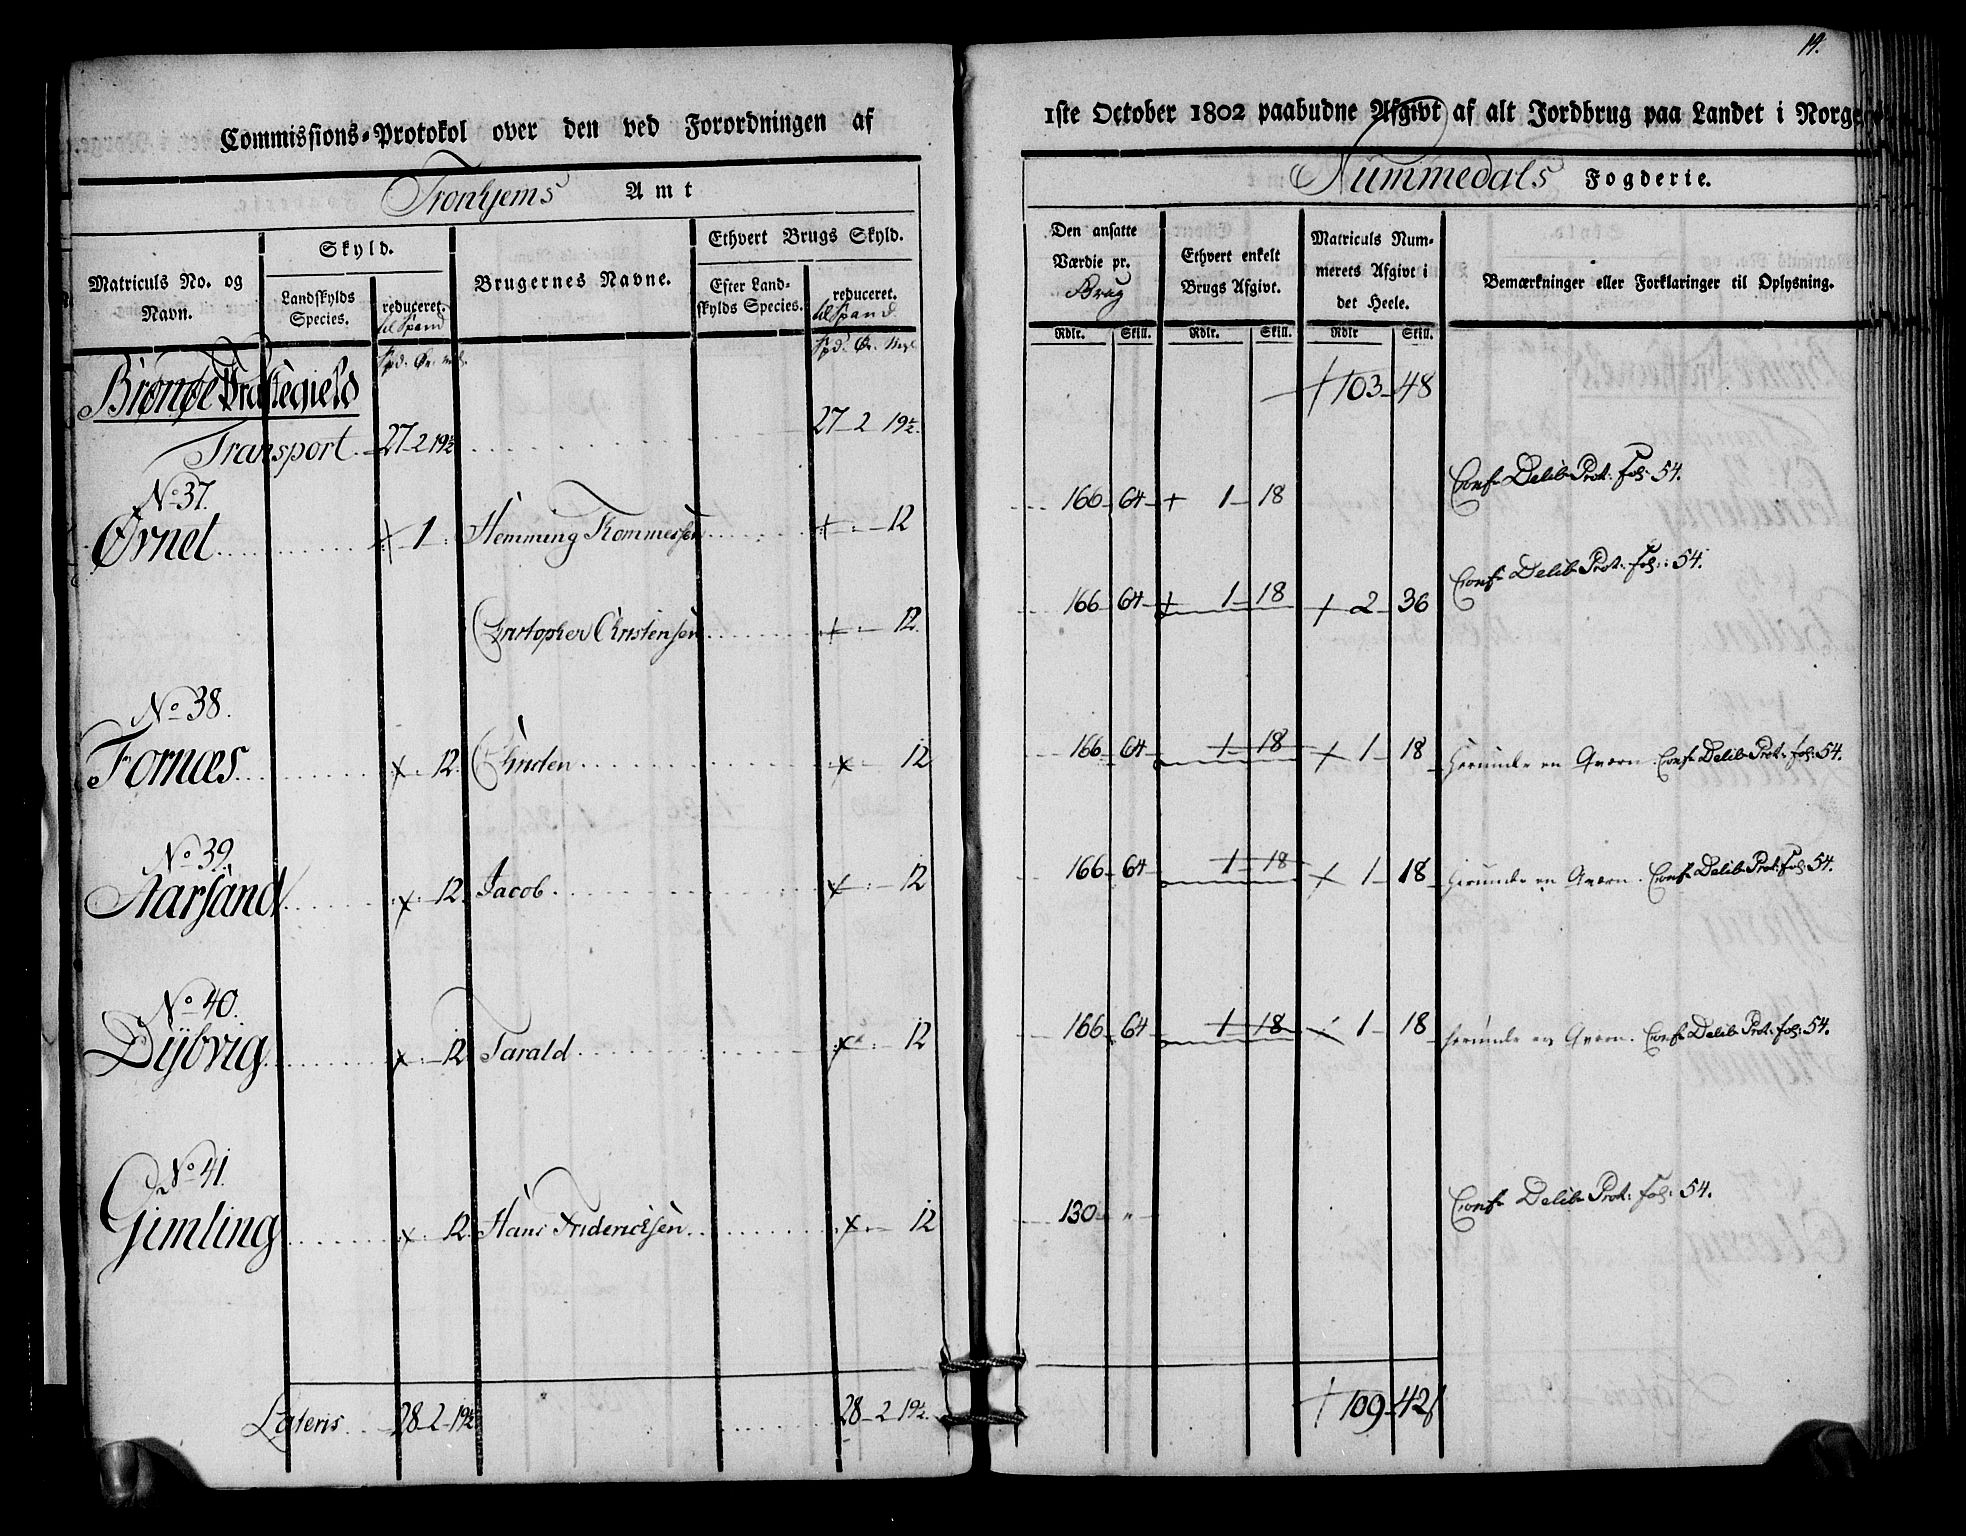 Commissions-Protokol over den ved Forordningen af
Tronhjems Amt
Matriculs No. og Navn.
Skyld.
Landskylds Species.
reduceret.
til Spand
Brugernes Navne.
Ethvert Brugs Skyld.
Efter Landskylds Species.
reduceret.
til Spand
Spd. Ør.
Spd. Ør.
Brønøe Præstegield
Transport 27 2 19½ 27 2 19½
No 37.
Ørnet 1 Hemming Tommessen 12
Christopher Christensen 12
No 38.
Fornæs 12 12
No 39.
Aarsand 12 Jacob 12
No 40.
Dÿbvig 12 Tarald 12
No 41.
Gimling 12 Hans Friderichsen 12
Lateris 28 2 19½ 28 2 19½
19.
1ste October 1802 paabudne Afgivt af alt Jordbrug paa Landet i Norge
Nummedals Fogderie.
Den ansatte Værdie pr. Brug
Ethvert enkelt Brugs Afgivt.
Matriculs Nummerets Afgivt i det Heele.
Bemærkninger eller Forklaringer til Oplysning.
Rdlr. Skill. Rdlr. Skill. Rdlr Skill.
103 48
166 64 + 1 18 Conf Delib Prot: fol: 54.
166 64 + 1 18 + 2 36 Conf Delib Prot: fol: 54.
166 64 1 18 + 1 18 herunder en Qværn. Conf Delib Prot: fol: 54.
166 64 1 18 + 1 18 herunder en Qværn. Conf Delib Prot: fol: 54.
166 64 1 18 + 1 18 herunder en Qværn. Conf Delib Prot: fol: 54.
130 " Conf Delib Prot: fol: 54.
109 42